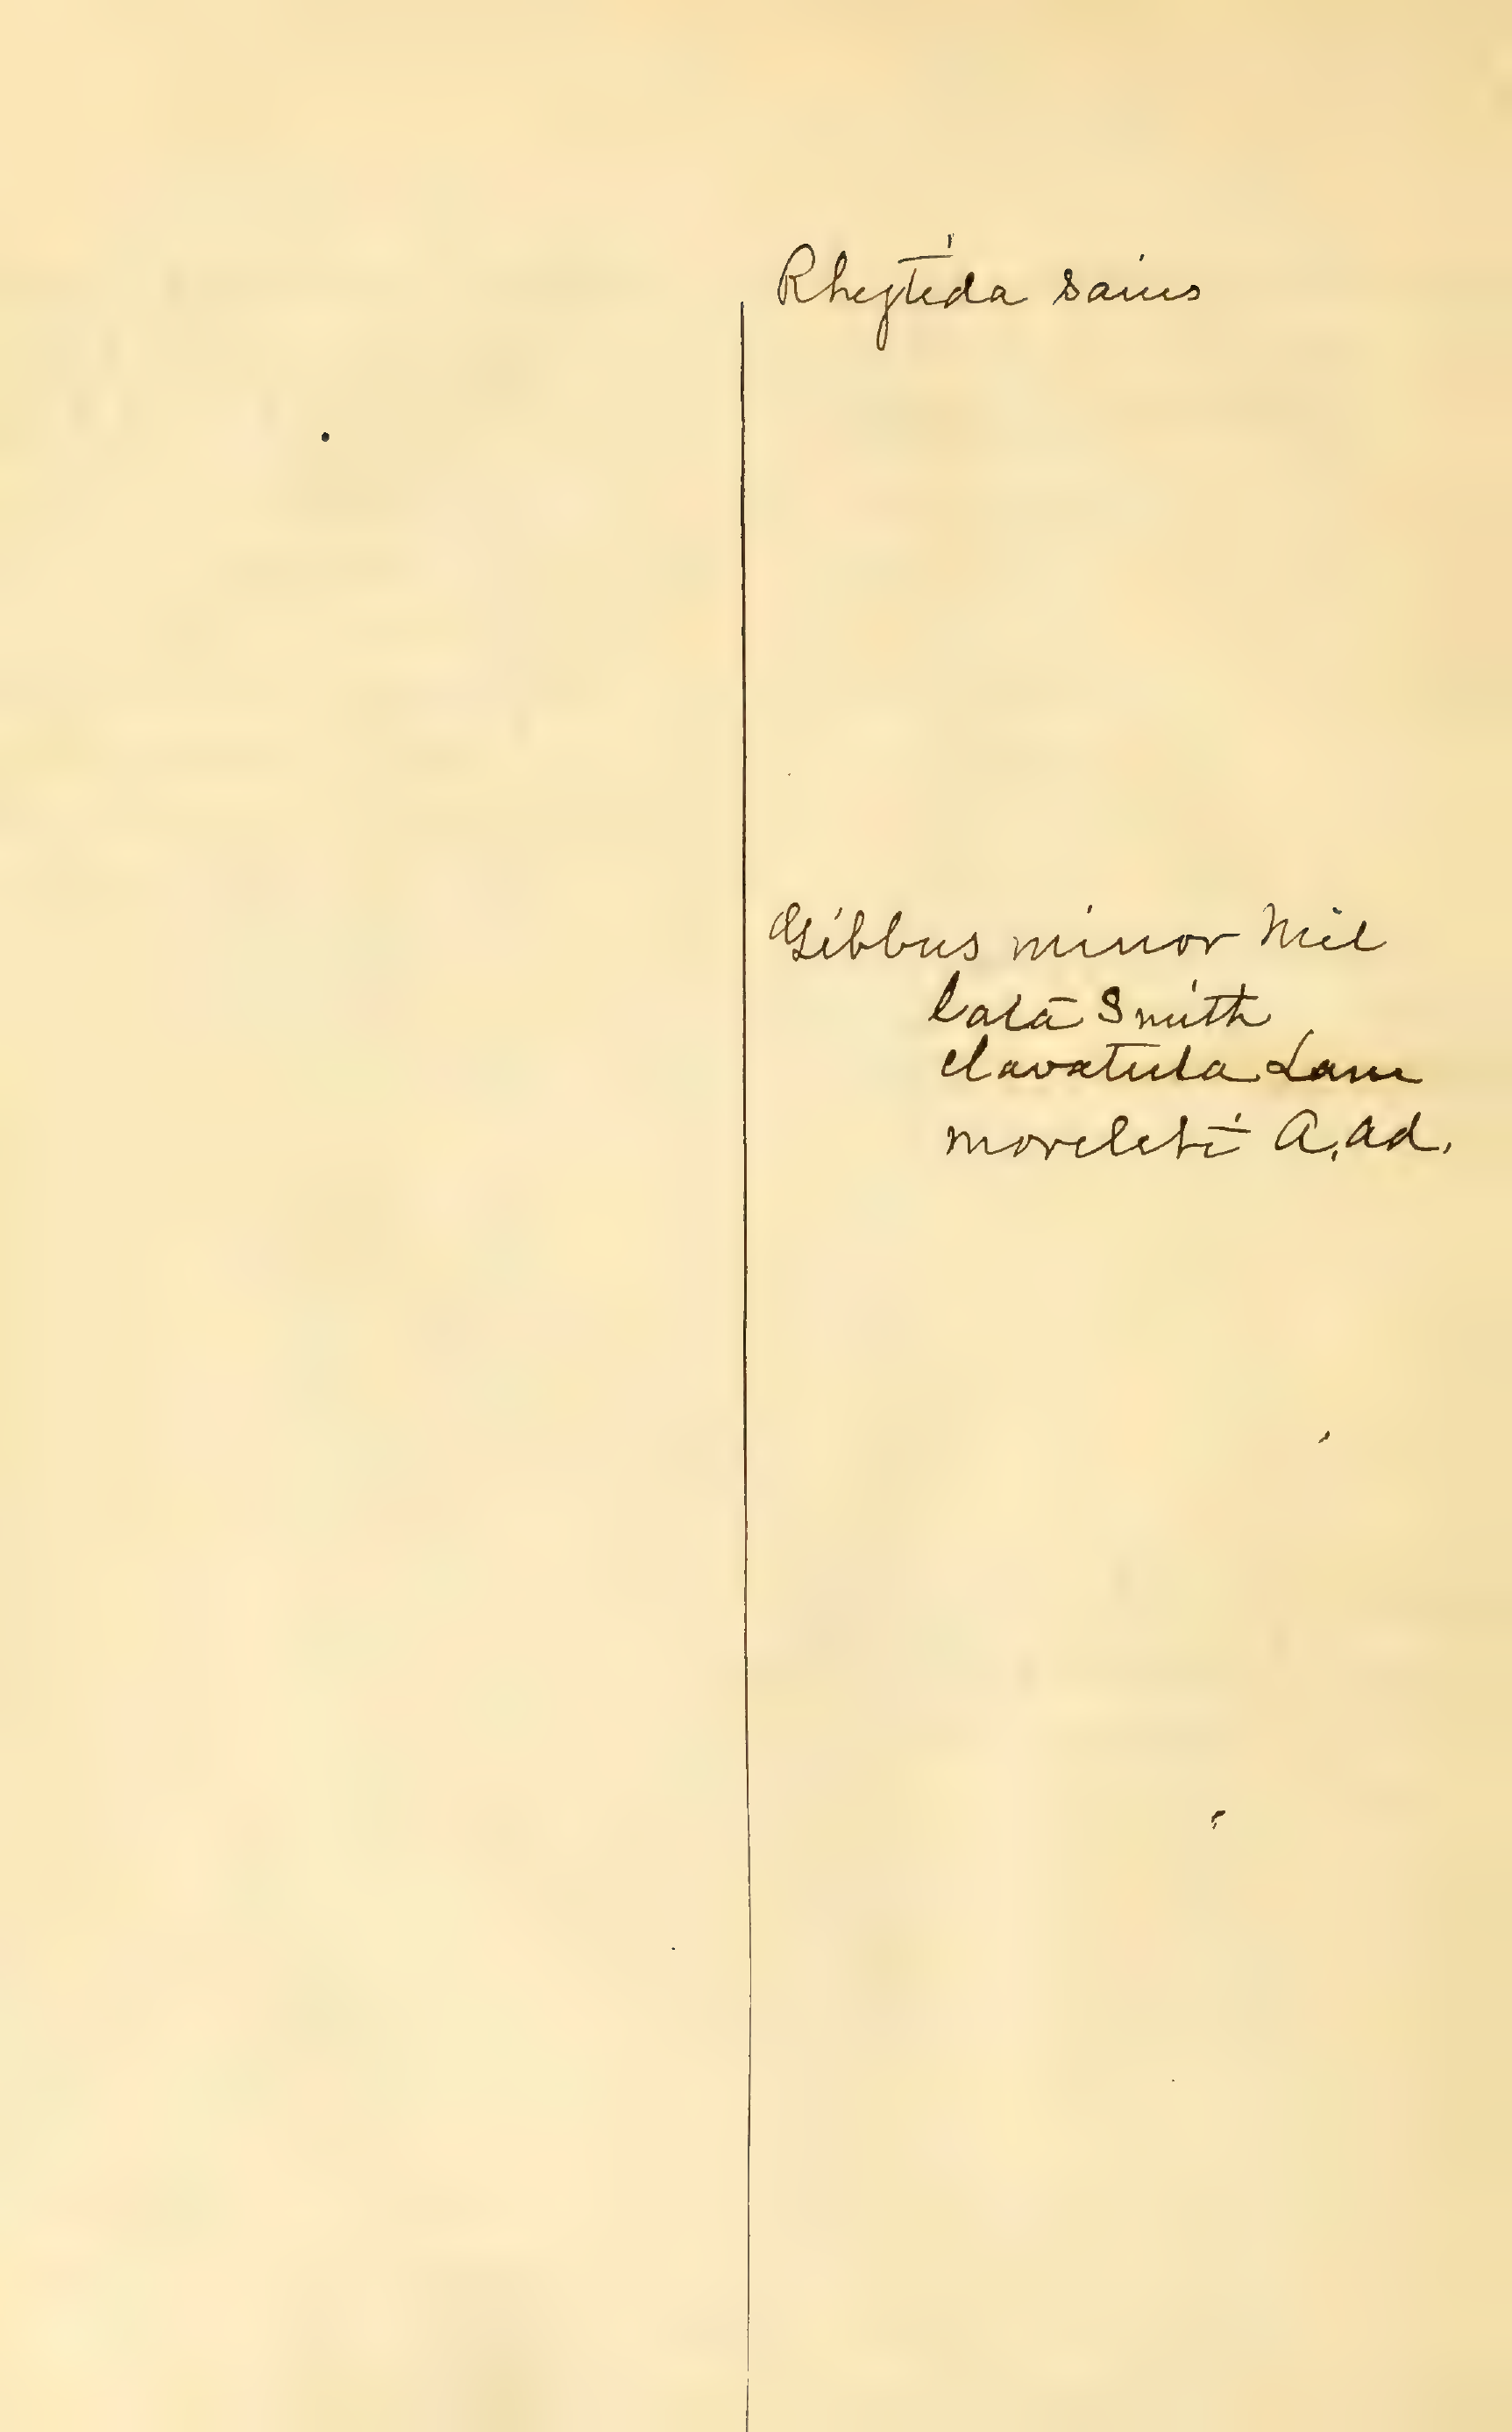 Rhytida
Gibbus minor Nil
lata Smith
clavatula Lam
moreleti A. Ad.